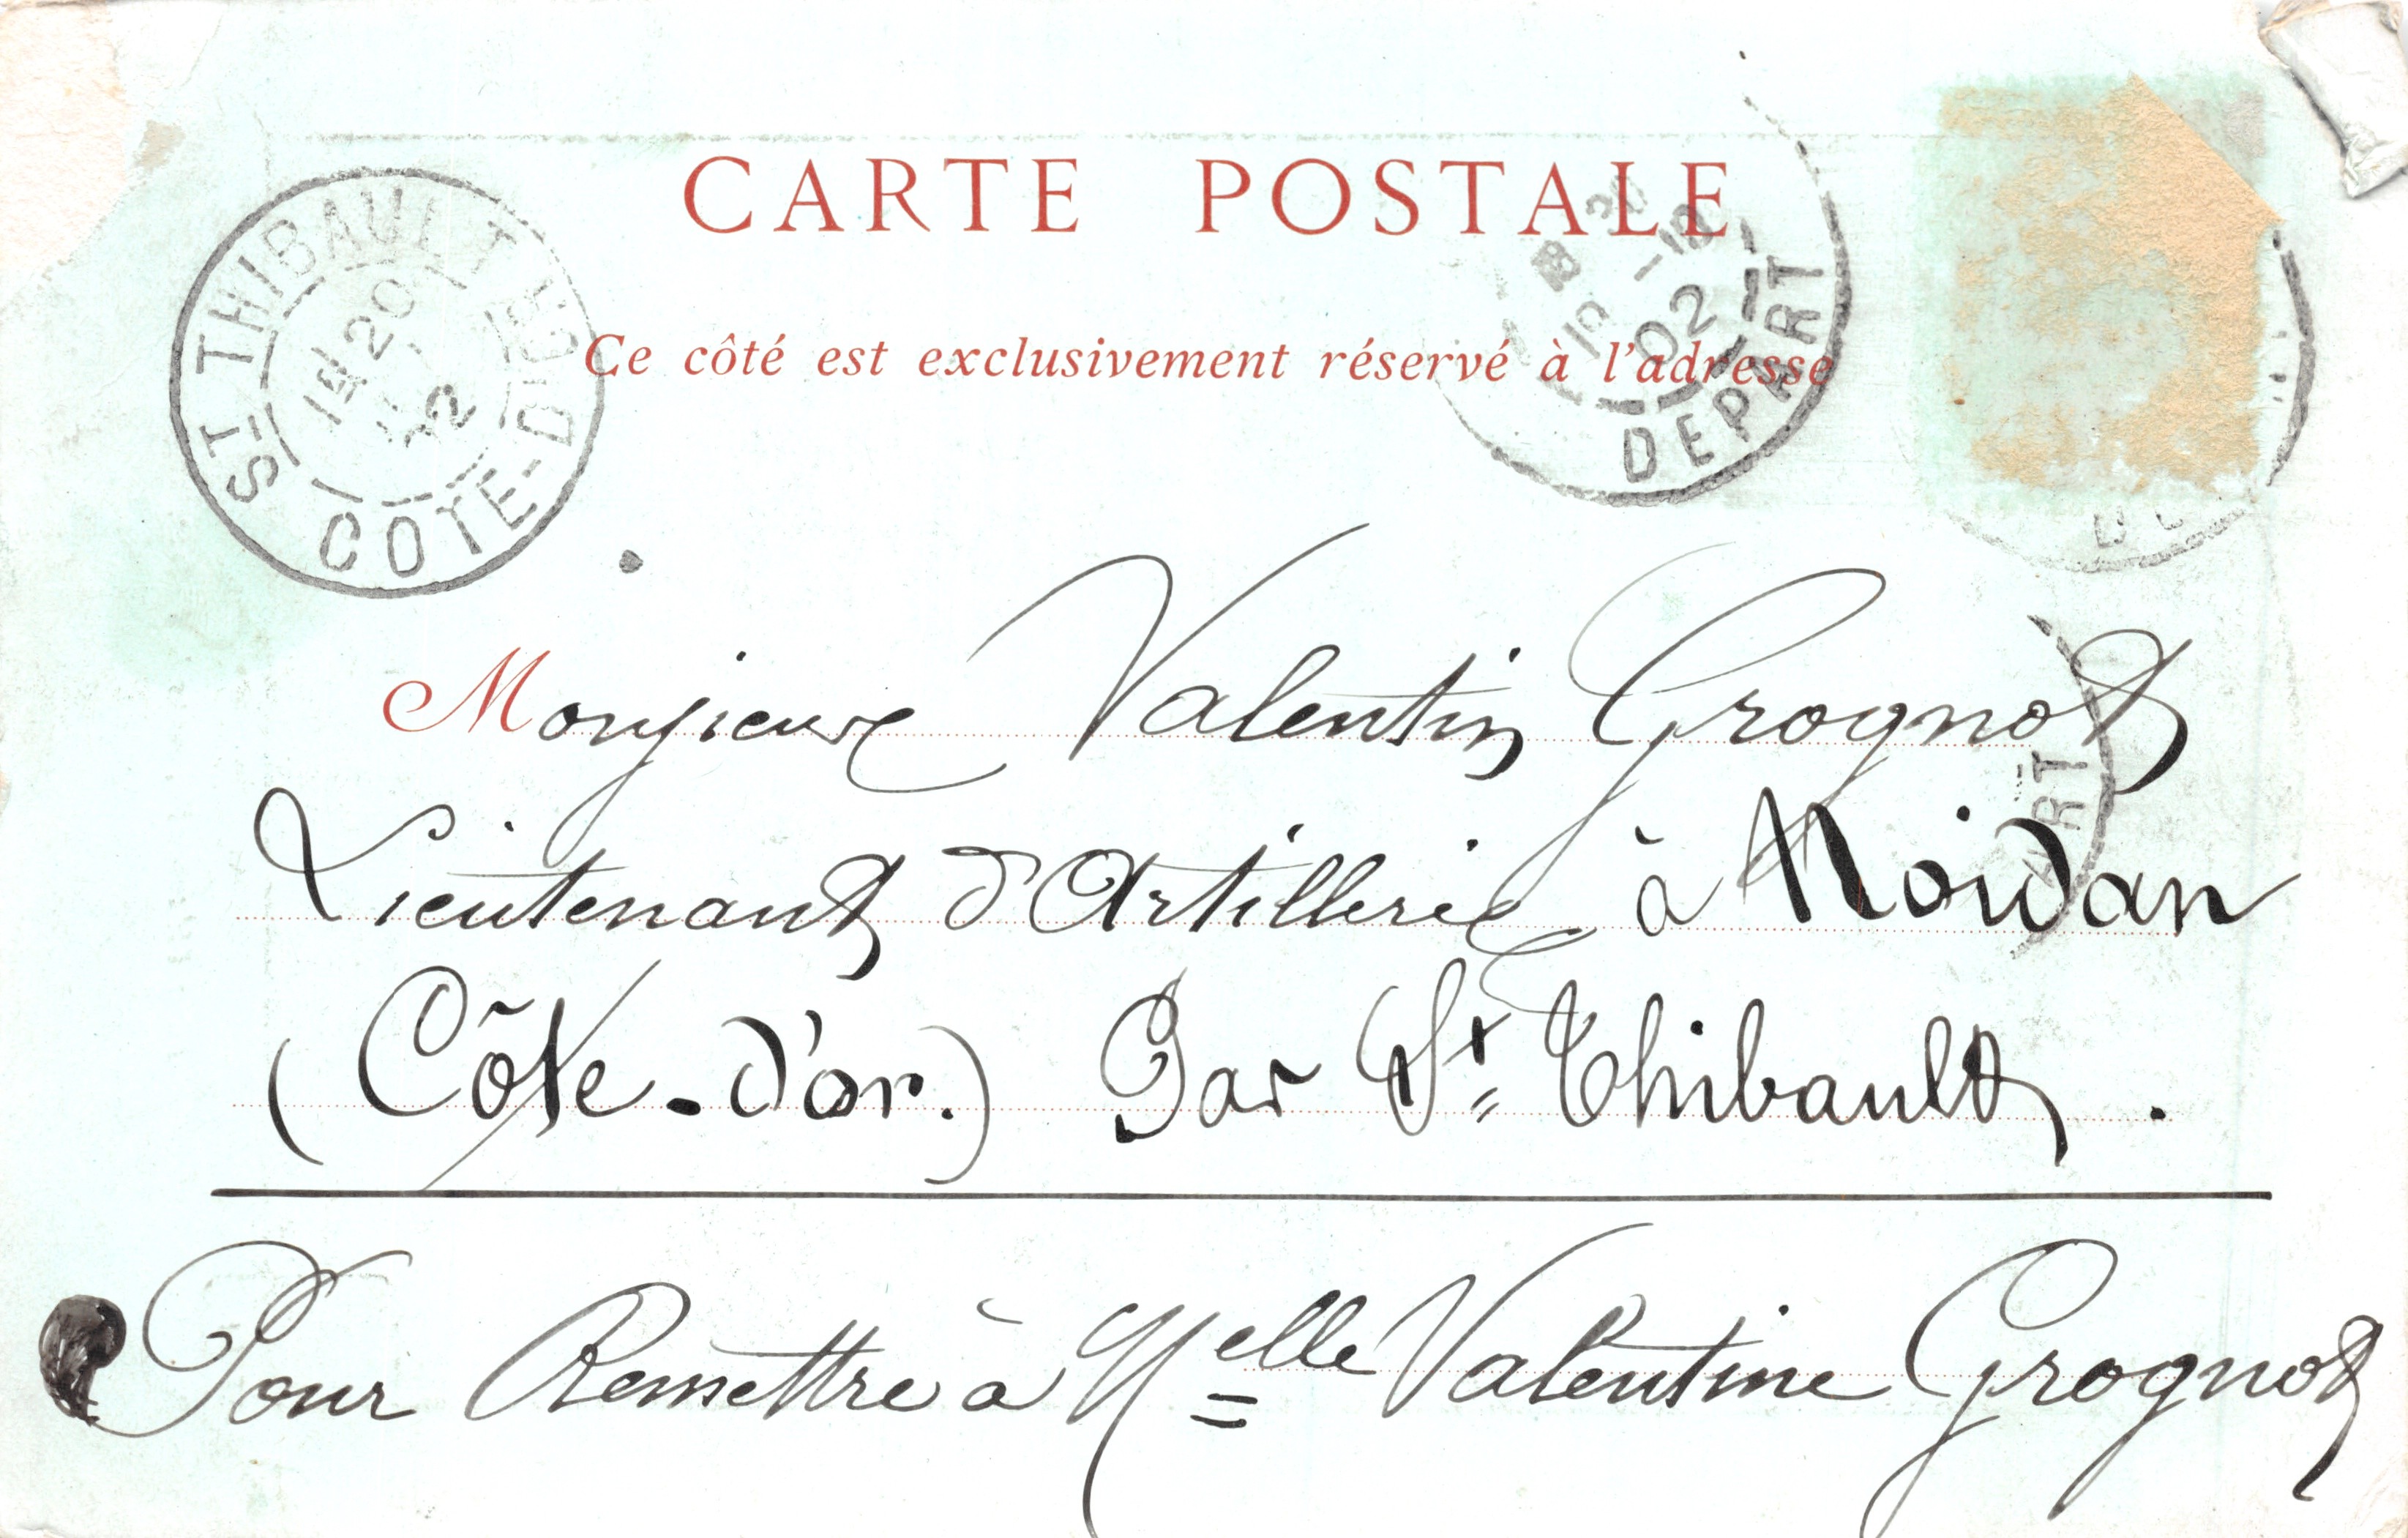 CARTE POSTALE
Ce côté est exclusivement réservé à l'adresse
ST THIBAULT
CÔTE-D'OR
02
DEPART
Monsieur Valentin Grognot
Lieutenant d'Artillerie à Noidan
(Côte-d'or.) Par St Thibault.
Pour Remettre à Melle Valentine Grognot